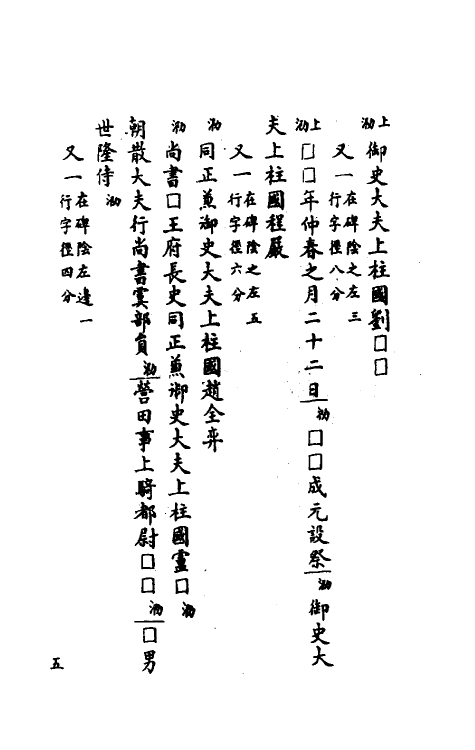 上泐御史大夫上柱國劉□□
又一在碑陰之左三行字徑八分
上泐□□年仲春之月二十二日泐□□成元設祭泐御史大
夫上柱國程嚴
又一在碑陰之左五行字徑六分
泐同正兼御史大夫上柱國趙全弈
泐尚書□王府長史同正兼御史大夫上柱國靈□泐
朝散大夫行尚書虞部員泐營田事上騎都尉□□泐□男
世隆侍泐
又一在碑陰左邊一行字徑四分
五